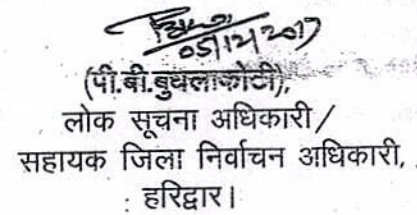 05/12/2017
(पी.बी.बुधलाकोटी),
लोक सूचना अधिकारी/
सहायक जिला निर्वाचन अधिकारी,
हरिद्वार।